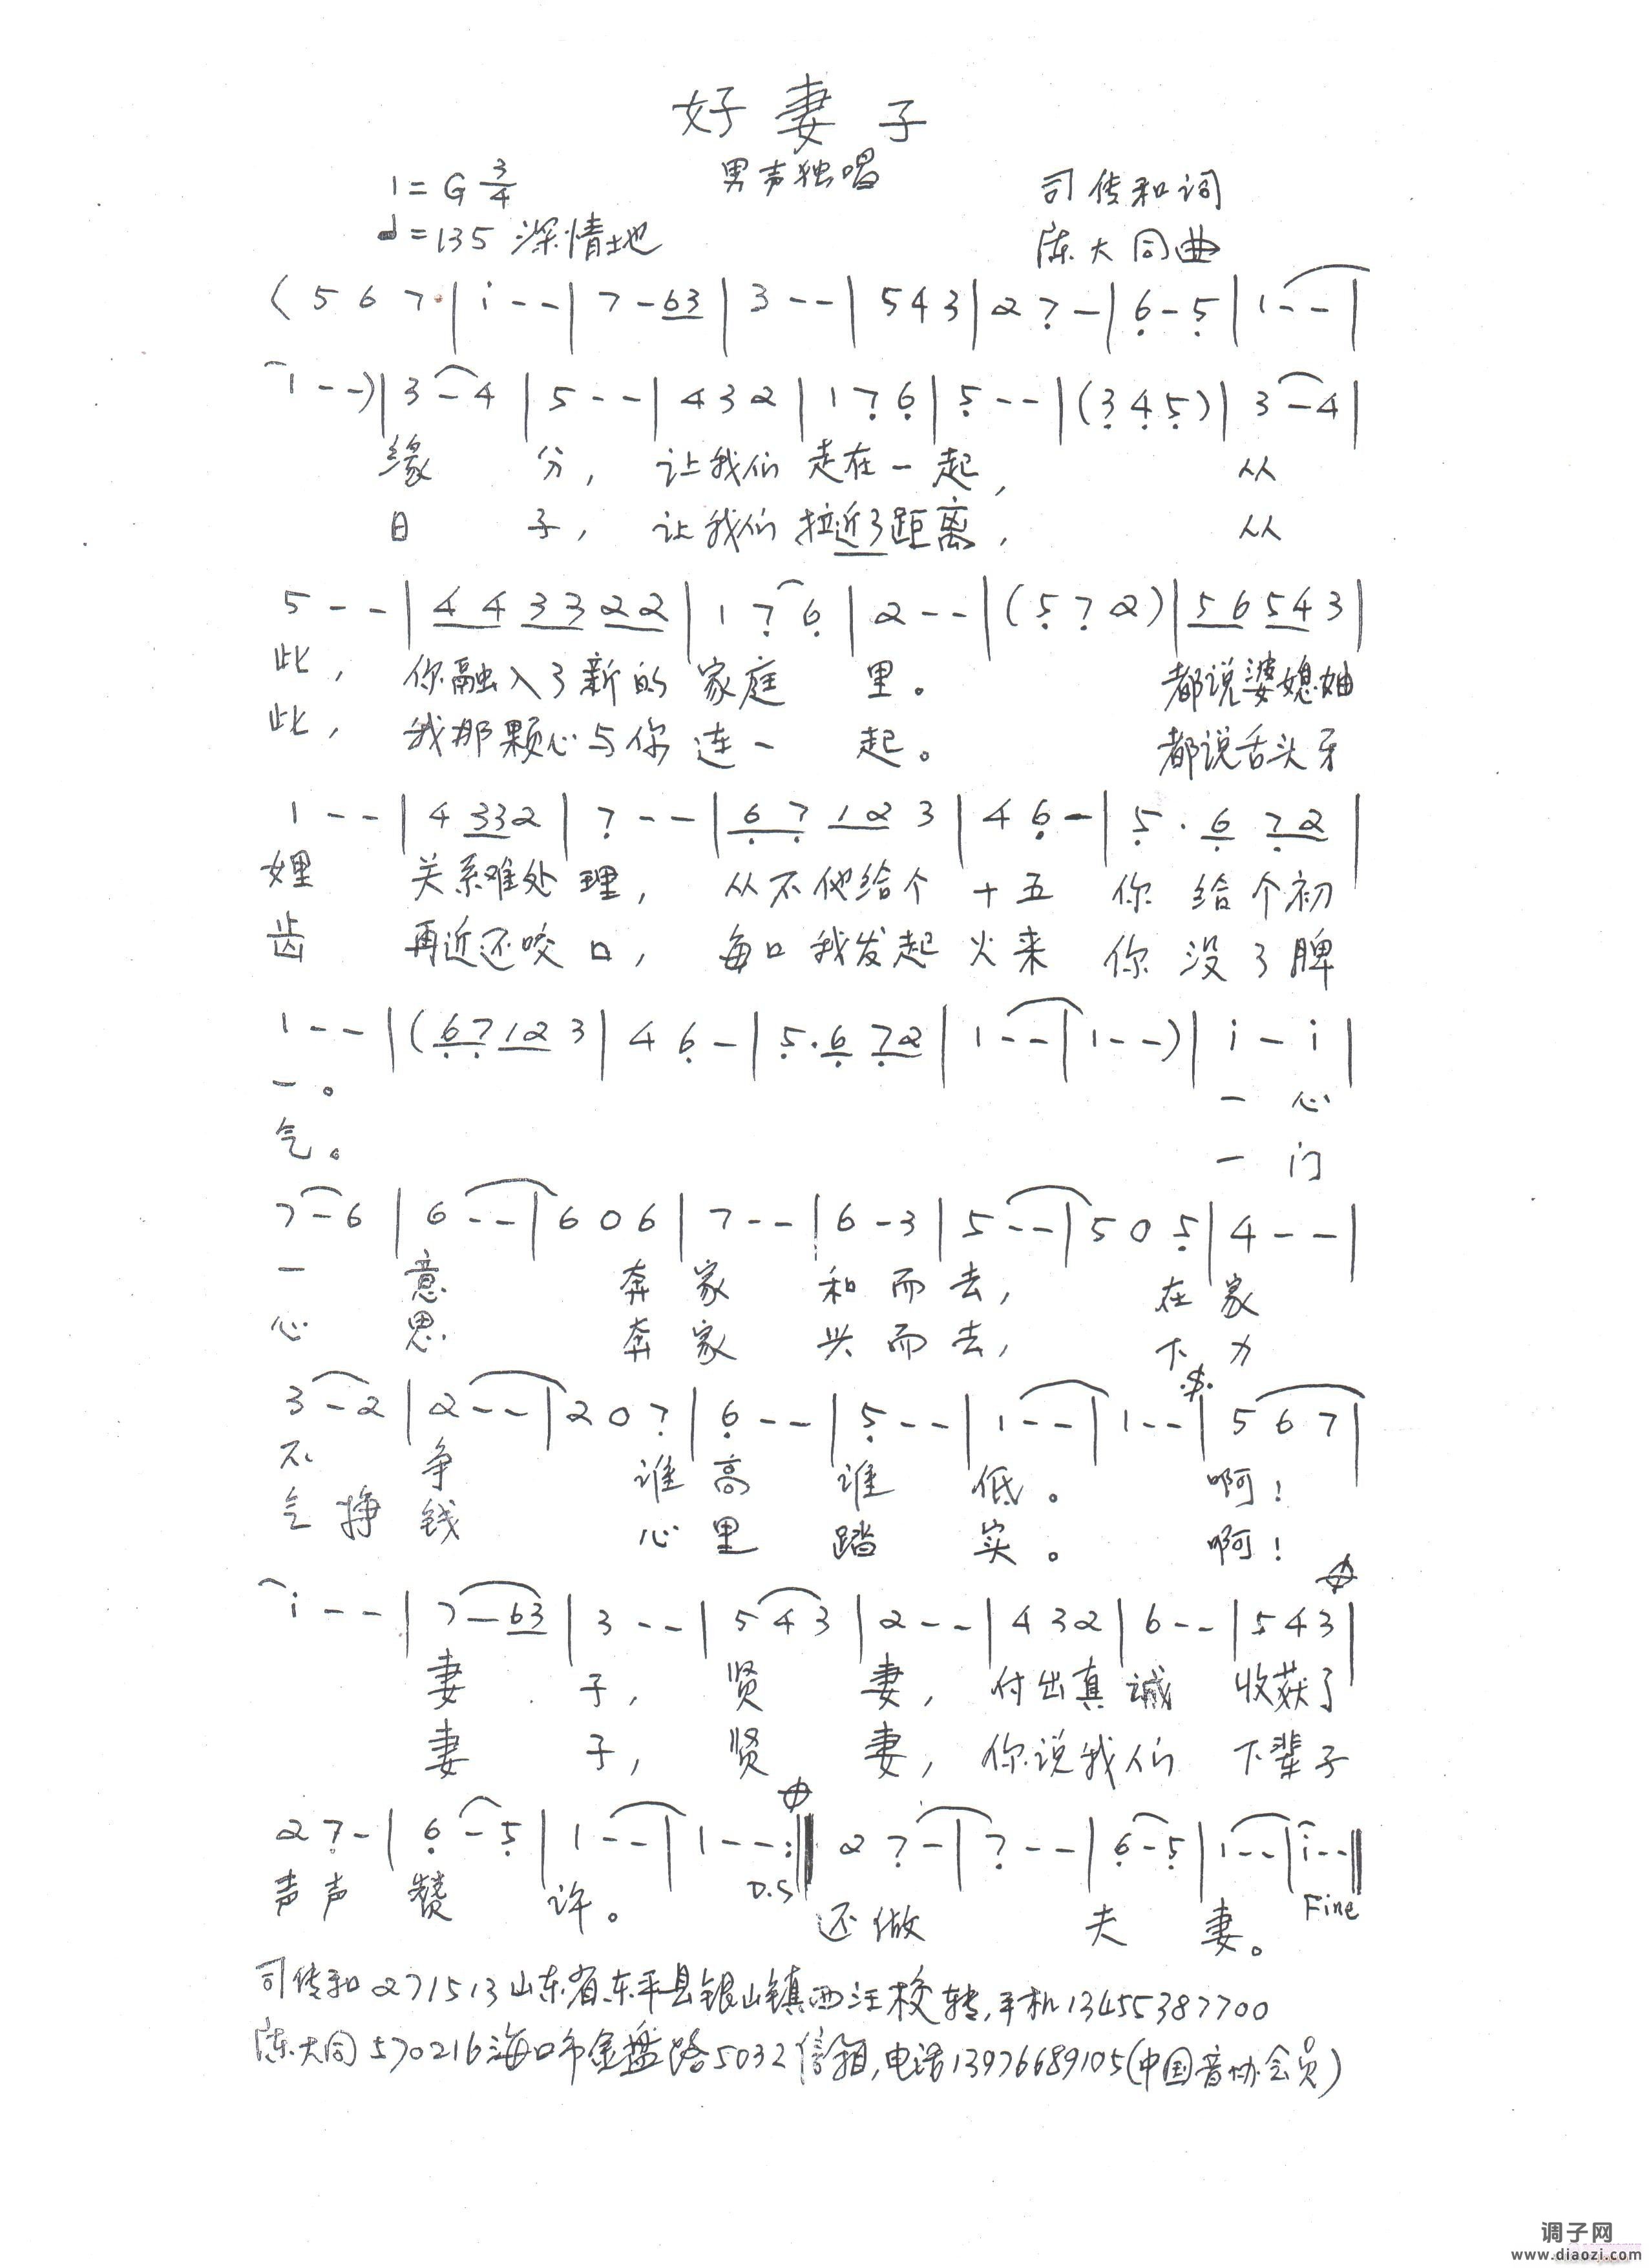 好妻子
男声独唱
1=G 3/4
司传和词
♩=135 深情地
陈大同曲
(5 6 7 | i - - | 7 - 63 | 3 - - | 5 4 3 | 2 7 - | 6 - 5 | 1 - - |
1 - -) | 3 - 4 | 5 - - | 4 3 2 | 1 7 6 | 5 - - | (3 4 5) | 3 - 4 |
缘 分, 让我们 走在一起, 从
日 子, 让我们 拉近了距离, 从
5 - - | 4 4 3 3 2 2 | 1 7 6 | 2 - - | (5 7 2) | 5 6 5 4 3 |
此, 你融入了新的 家庭 里。 都说婆媳妯
此, 我那颗心与你 连一 起。 都说舌头牙
1 - - | 4 3 3 2 | 7 - - | 6 7 1 2 3 | 4 6 - | 5 · 6 7 2 |
娌 关系难处理, 从不他给个 十五 你 给个初
齿 再近还咬口, 每口我发起 火来 你 没了脾
1 - - | (6 7 1 2 3 | 4 6 - | 5 · 6 7 2 | 1 - - | 1 - -) | i - i |
一。 一 心
气。 一 门
7 - 6 | 6 - - | 6 0 6 | 7 - - | 6 - 3 | 5 - - | 5 0 5 | 4 - - |
一 意 奔 家 和而去, 在 家
心 思 奔 家 兴而去, 下 力
3 - 2 | 2 - - | 2 0 7 | 6 - - | 5 - - | 1 - - | 1 - - | 5 6 7 |
不 争 谁 高 谁 低。 啊!
气 挣 钱 心 里 踏 实。 啊!
i - - | 7 - 63 | 3 - - | 5 4 3 | 2 - - | 4 3 2 | 6 - - | 5 4 3 |
妻 子, 贤 妻, 付出真诚 收获了
妻 子, 贤 妻, 你说我们 下辈子
2 7 - | 6 - 5 | 1 - - | 1 - - :‖ 2 7 - | 7 - - | 6 - 5 | 1 - - | i - - ‖
声声 赞 许。 D.S 还做 夫 妻。 Fine
司传和 271513 山东省东平县银山镇西汪校转,手机13455387700
陈大同 570216 海口市金盘路5032信箱,电话13976689105(中国音协会员)
调子网
www.diaozi.com